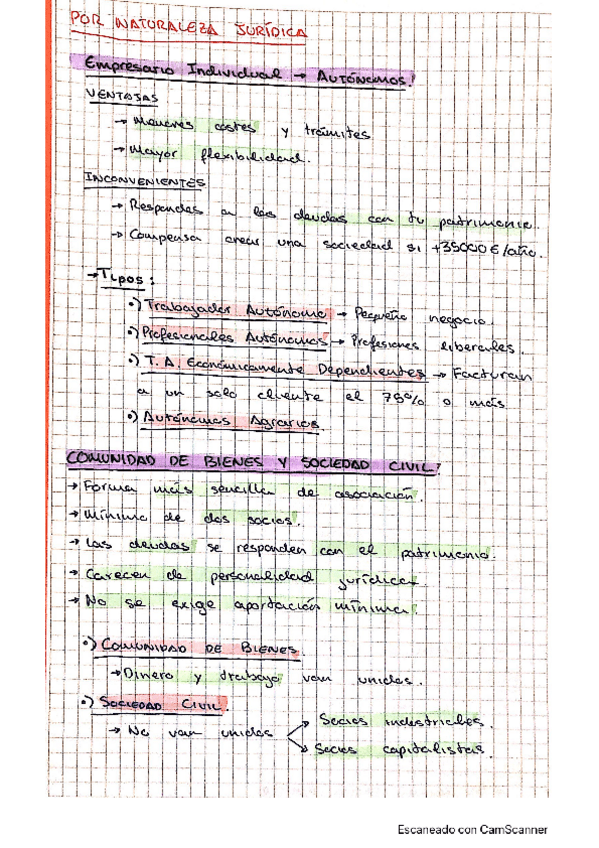 POR NATURALEZA JURÍDICA
Empresario Individual → AUTÓNOMOS!
VENTAJAS
→ Menores costes y trámites
→ Mayor flexibilidad.
INCONVENIENTES
→ Respondes a las deudas con tu patrimonio.
→ Compensa crear una sociedad si +35000€/año.
→ TIPOS:
•) Trabajador Autónomo → Pequeño negocio.
•) Profesionales Autónomos → Profesiones liberales.
•) T. A. Económicamente Dependientes → Facturan
a un solo cliente el 75% o más
•) Autónomos Agrarios.
COMUNIDAD DE BIENES Y SOCIEDAD CIVIL!
→ Forma más sencilla de asociación.
→ Mínimo de dos socios.
→ Las deudas se responden con el patrimonio.
→ Carecen de personalidad jurídica
→ No se exige aportación mínima.
•) COMUNIDAD DE BIENES.
→ Dinero y trabajo van unidos.
•) SOCIEDAD CIVIL.
→ No van unidos
Socios industriales.
Socios capitalistas.
Escaneado con CamScanner